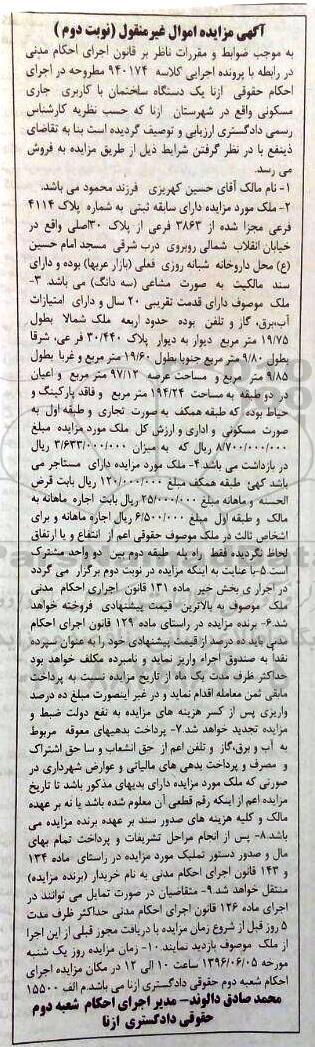 آگهی مزایده اموال غیرمنقول (نوبت دوم )
به موجب ضوابط و مقررات ناظر بر قانون اجرای احکام مدنی
در رابطه با پرونده اجرایی کلاسه ۹۴۰۱۷۴ مطروحه در اجرای
احکام حقوقی ازنا یک دستگاه ساختمان با کاربری جاری
مسکونی واقع در شهرستان ازنا که حسب نظریه کارشناس
رسمی دادگستری ارزیابی و توصیف گردیده است بنا به تقاضای
ذینفع با در نظر گرفتن شرایط ذیل از طریق مزایده به فروش
می رسد.
۱- نام مالک آقای حسین کهریزی فرزند محمود می باشد.
۲- ملک مورد مزایده دارای سابقه ثبتی به شماره پلاک ۴۱۱۴
فرعی مجزا شده از ۳۸۶۳ فرعی از پلاک ۳۰اصلی واقع در
خیابان انقلاب شمالی روبروی درب شرقی مسجد امام حسین
(ع) محل داروخانه شبانه روزی فعلی (بازار عربها) بوده و دارای
سند مالکیت به صورت مشاعی (سه دانگ) می باشد. ۳-
ملک موصوف دارای قدمت تقریبی ۲۰ سال و دارای امتیازات
آب،برق، گاز و تلفن بوده حدود اربعه ملک شمالا بطول
۱۹/۷۵ متر مربع دیوار به دیوار پلاک ۳۰/۴۴۰ فرعی، شرقا
بطول ۹/۸۰ متر مربع جنوبا بطول ۱۹/۶۰ متر مربع و غربا بطول
۹/۸۵ متر مربع و مساحت عرصه ۹۷/۱۲ متر مربع و اعیان
در دو طبقه به مساحت ۱۹۴/۲۴ متر مربع و فاقد پارکینگ و
حیاط بوده که طبقه همکف به صورت تجاری و طبقه اول به
صورت مسکونی و اداری و ارزش کل ملک مورد مزایده مبلغ
۸/۷۰۰/۰۰۰/۰۰۰ ریال که به میزان ۳/۶۳۳/۰۰۰/۰۰۰ ریال
در بازداشت می باشد ۴- ملک مورد مزایده دارای مستاجر می
باشد کهئ طبقه همکف مبلغ ۱۲۰/۰۰۰/۰۰۰ ریال بابت قرض
الحسنه و ماهانه مبلغ ۲۵/۰۰۰/۰۰۰ ریال بابت اجاره ماهانه به
مالک و طبقه اول مبلغ ۶/۵۰۰/۰۰۰ ریال اجاره ماهانه و برای
اشخاص ثالث در ملک موصوف حقوقی اعم از انتفاع و یا ارتفاق
لحاظ نگردیده فقط راه پله طبقه دوم بین دو واحد مشترک
است ۵-با عنایت به اینکه مزایده در نوبت دوم برگزار می گردد
در اجرا ی بخش خیر ماده ۱۳۱ قانون اجراری احکام مدنی
ملک موصوف به بالاترین قیمت پیشنهادی فروخته خواهد
شد.۶- برنده مزایده در راستای ماده ۱۲۹ قانون اجرای احکام
مدنی باید ده درصد از قیمت پیشنهادی خود را به عنوان سپرده
نقدا به صندوق اجراء واریز نماید و نامبرده مکلف خواهد بود
حداکثر ظرف مدت یک ماه از تاریخ مزایده نسبت به پرداخت
مابقی ثمن معامله اقدام نماید و در غیر اینصورت مبلغ ده درصد
واریزی پس از کسر هزینه های مزایده به نفع دولت ضبط و
مزایده تجدید خواهد شد.۷- پرداخت بدهیهای معوقه مربوط
به آب و برق،گاز و تلفن اعم از حق انشعاب و سا حق اشتراک
و مصرف و پرداخت بدهی های مالیاتی و عوارض شهرداری در
صورتی که ملک مورد مزایده دارای بدیهای مذکور باشد تا تاریخ
مزایده اعم از اینکه رقم قطعی آن معلوم شده باشد یا نه بر عهده
مالک و کلیه هزینه های صدور سند بر عهده برنده مزایده می
باشد.۸- پس از انجام مراحل تشریفات و پرداخت تمام بهای
مال و صدور دستور تملیک مورد مزایده در راستای ماده ۱۳۴
و ۱۴۳ قانون اجرای احکام مدنی به نام خریدار (برنده مزایده)
منتقل خواهد شد.۹- متقاضیان در صورت تمایل می توانند در
اجرای ماده ۱۲۶ قانون اجرای احکام مدنی حداکثر ظرف مدت
۵ روز قبل از شروع زمان مزایده با دریافت مجوز قبلی از این اجرا
از ملک موصوف بازدید نمایند ۱۰- زمان مزایده روز یک شنبه
مورخه ۱۳۹۶/۰۶/۰۵ ساعت ۱۰ الی ۱۲ در مکان مزایده اجرای
احکام شعبه دوم حقوقی دادگستری ازنا می باشد.م الف ۱۵۵۰۰
محمد صادق دالوند- مدیر اجرای احکام شعبه دوم
حقوقی دادگستری ازنا